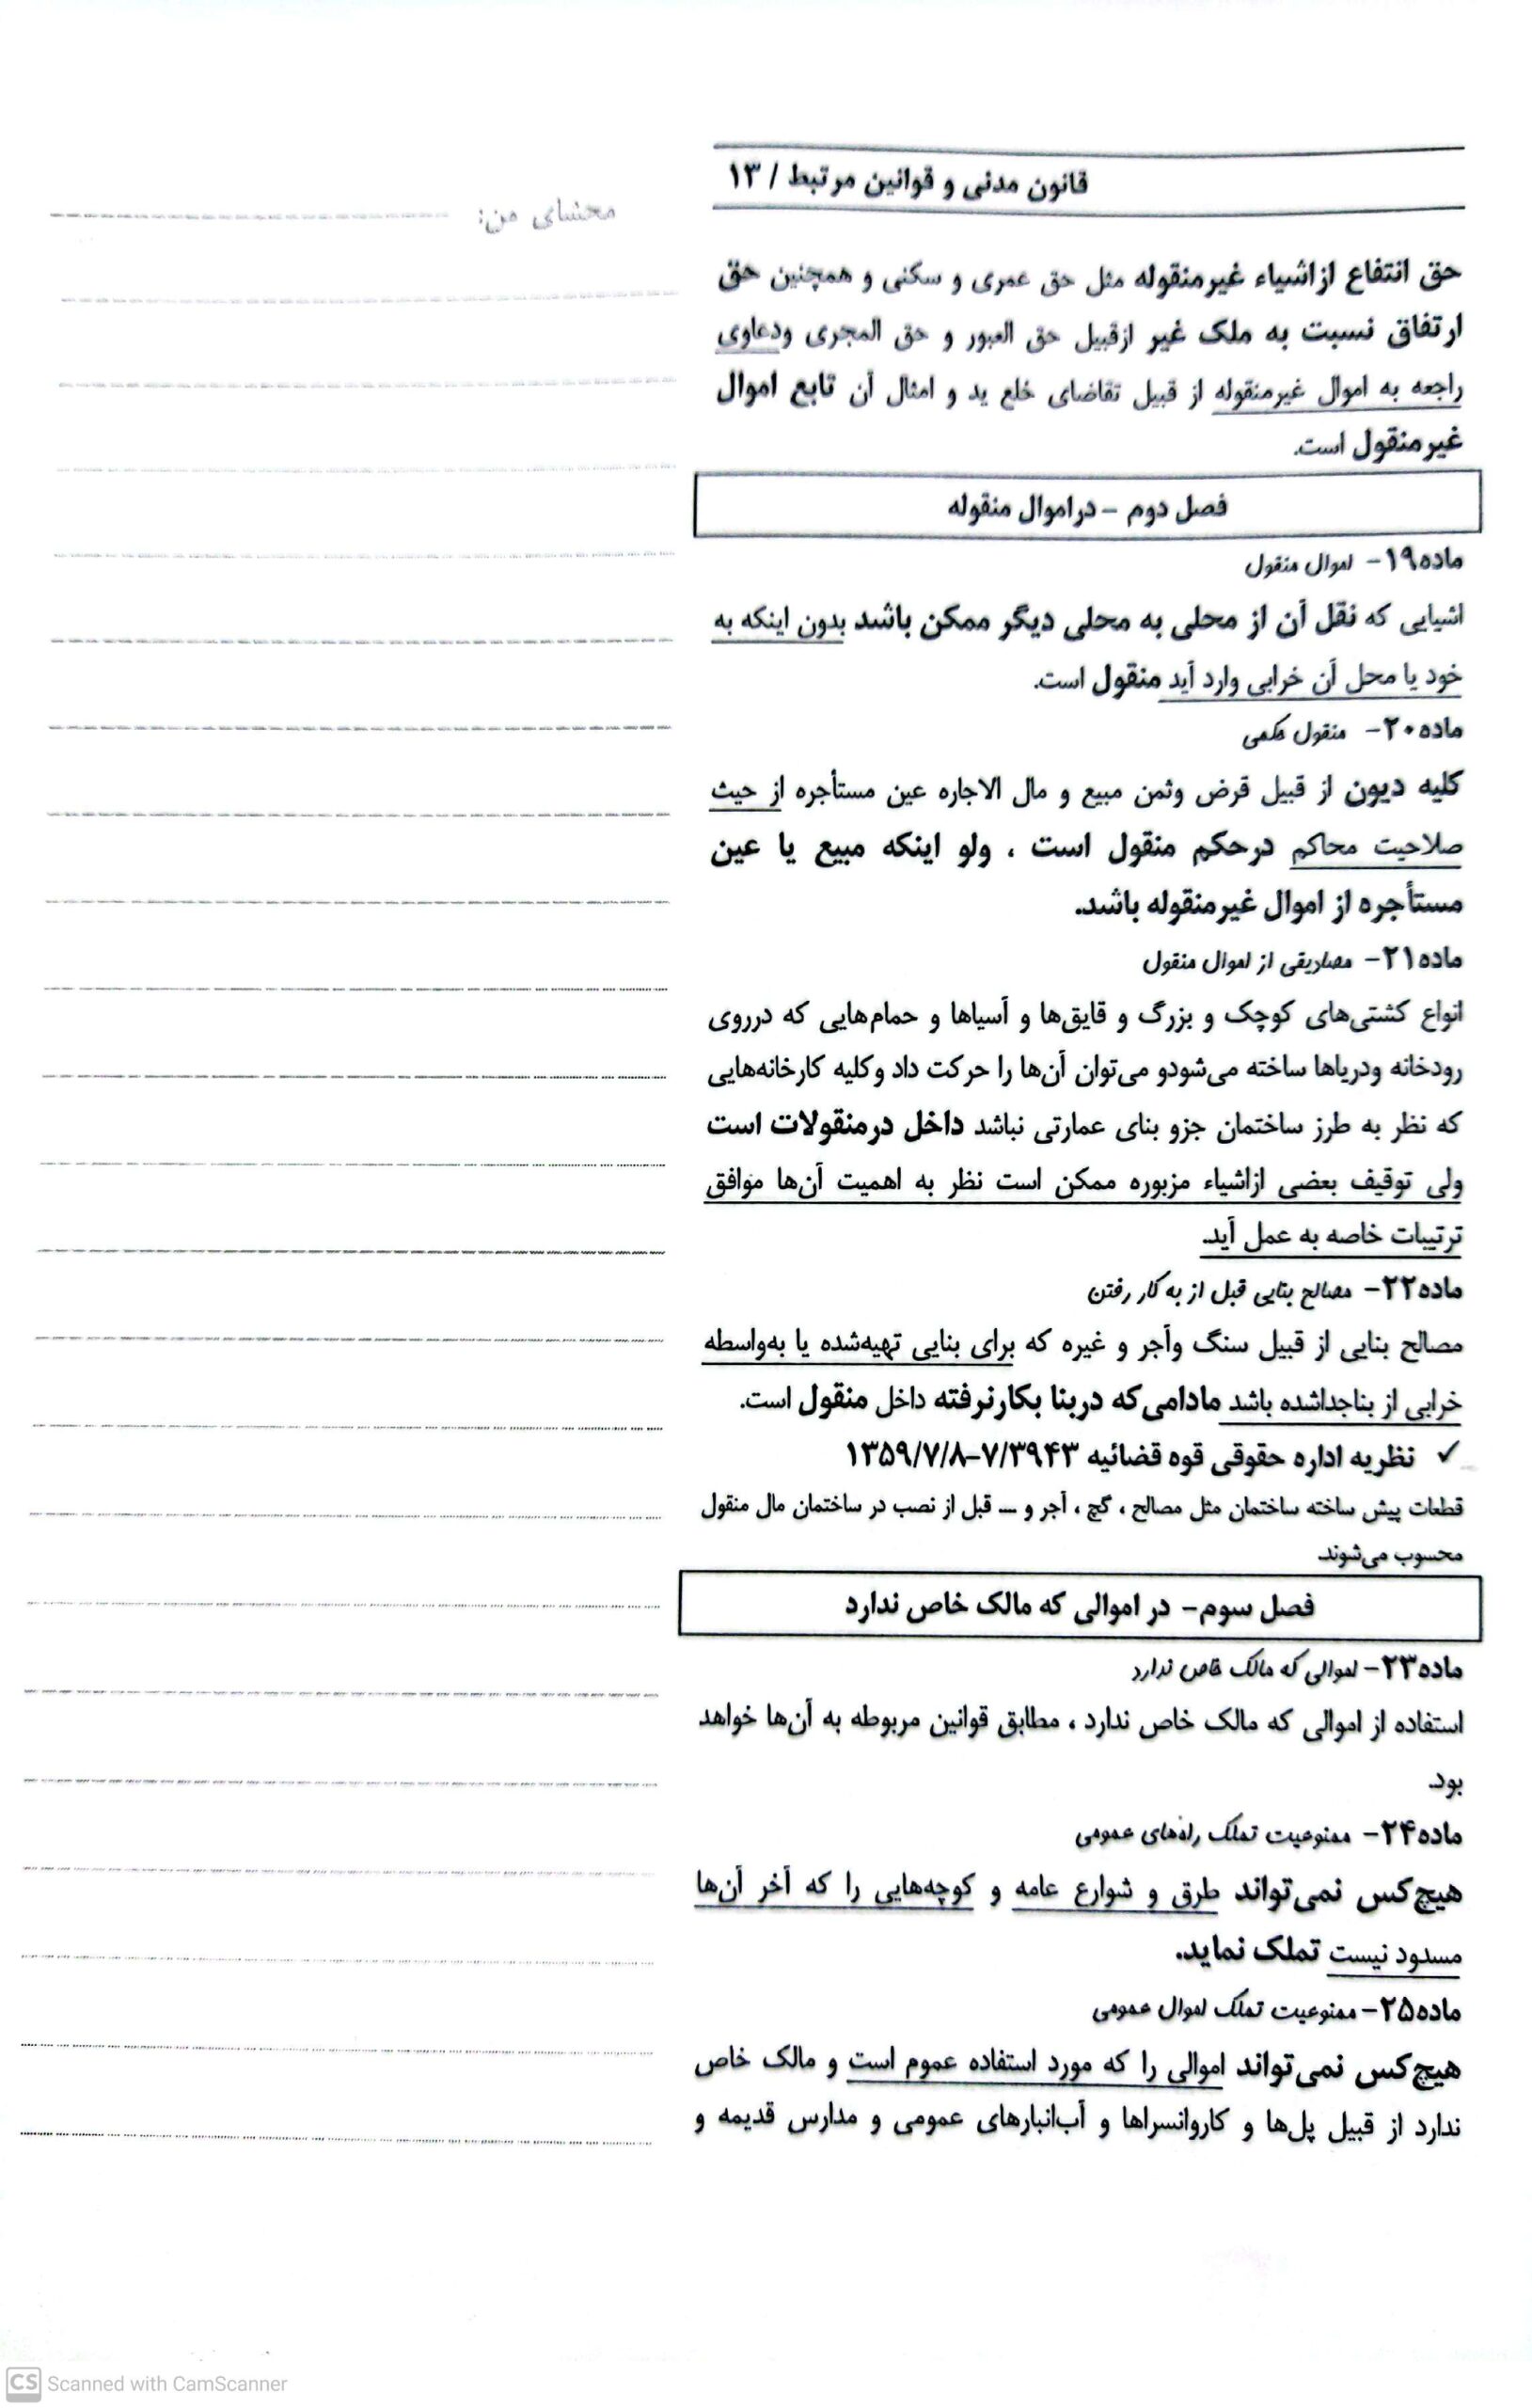 قانون مدنی و قوانین مرتبط / ۱۳
محشای من:
حق انتفاع ازاشیاء غیرمنقوله مثل حق عمری و سکنی و همچنین حق
ارتفاق نسبت به ملک غیر ازقبیل حق العبور و حق المجری ودعاوی
راجعه به اموال غیرمنقوله از قبیل تقاضای خلع ید و امثال آن تابع اموال
غیرمنقول است.
فصل دوم – دراموال منقوله
ماده۱۹- اموال منقول
اشیایی که نقل آن از محلی به محلی دیگر ممکن باشد بدون اینکه به
خود یا محل آن خرابی وارد آید منقول است.
ماده۲۰- منقول حکمی
کلیه دیون از قبیل قرض وثمن مبیع و مال الاجاره عین مستأجره از حیث
صلاحیت محاکم درحکم منقول است ، ولو اینکه مبیع یا عین
مستأجره از اموال غیرمنقوله باشد.
ماده۲۱- مصاریقی از اموال منقول
انواع کشتی‌های کوچک و بزرگ و قایق‌ها و آسیاها و حمام‌هایی که درروی
رودخانه ودریاها ساخته می‌شودو می‌توان آن‌ها را حرکت داد وکلیه کارخانه‌هایی
که نظر به طرز ساختمان جزو بنای عمارتی نباشد داخل درمنقولات است
ولی توقیف بعضی ازاشیاء مزبوره ممکن است نظر به اهمیت آن‌ها موافق
ترتیبات خاصه به عمل آید.
ماده۲۲- مصالح بنایی قبل از به کار رفتن
مصالح بنایی از قبیل سنگ وآجر و غیره که برای بنایی تهیه‌شده یا به‌واسطه
خرابی از بناجداشده باشد مادامی‌که دربنا بکارنرفته داخل منقول است.
✓ نظریه اداره حقوقی قوه قضائیه ۷/۳۹۴۳-۱۳۵۹/۷/۸
قطعات پیش ساخته ساختمان مثل مصالح ، گچ ، آجر و ... قبل از نصب در ساختمان مال منقول
محسوب می‌شوند.
فصل سوم- در اموالی که مالک خاص ندارد
ماده۲۳- اموالی که مالک خاص ندارد
استفاده از اموالی که مالک خاص ندارد ، مطابق قوانین مربوطه به آن‌ها خواهد
بود.
ماده۲۴- ممنوعیت تملک راه‌های عمومی
هیچ‌کس نمی‌تواند طرق و شوارع عامه و کوچه‌هایی را که آخر آن‌ها
مسدود نیست تملک نماید.
ماده۲۵- ممنوعیت تملک اموال عمومی
هیچ‌کس نمی‌تواند اموالی را که مورد استفاده عموم است و مالک خاص
ندارد از قبیل پل‌ها و کاروانسراها و آب‌انبارهای عمومی و مدارس قدیمه و
CS Scanned with CamScanner